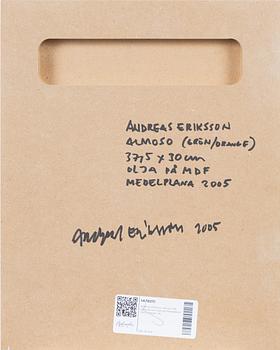 ANDREAS ERIKSSON
ALMOSO (GRÖN/ORANGE)
37,5 x 30 cm
OLJA PÅ MDF
MEDELPLANA 2005
Andreas Eriksson 2005